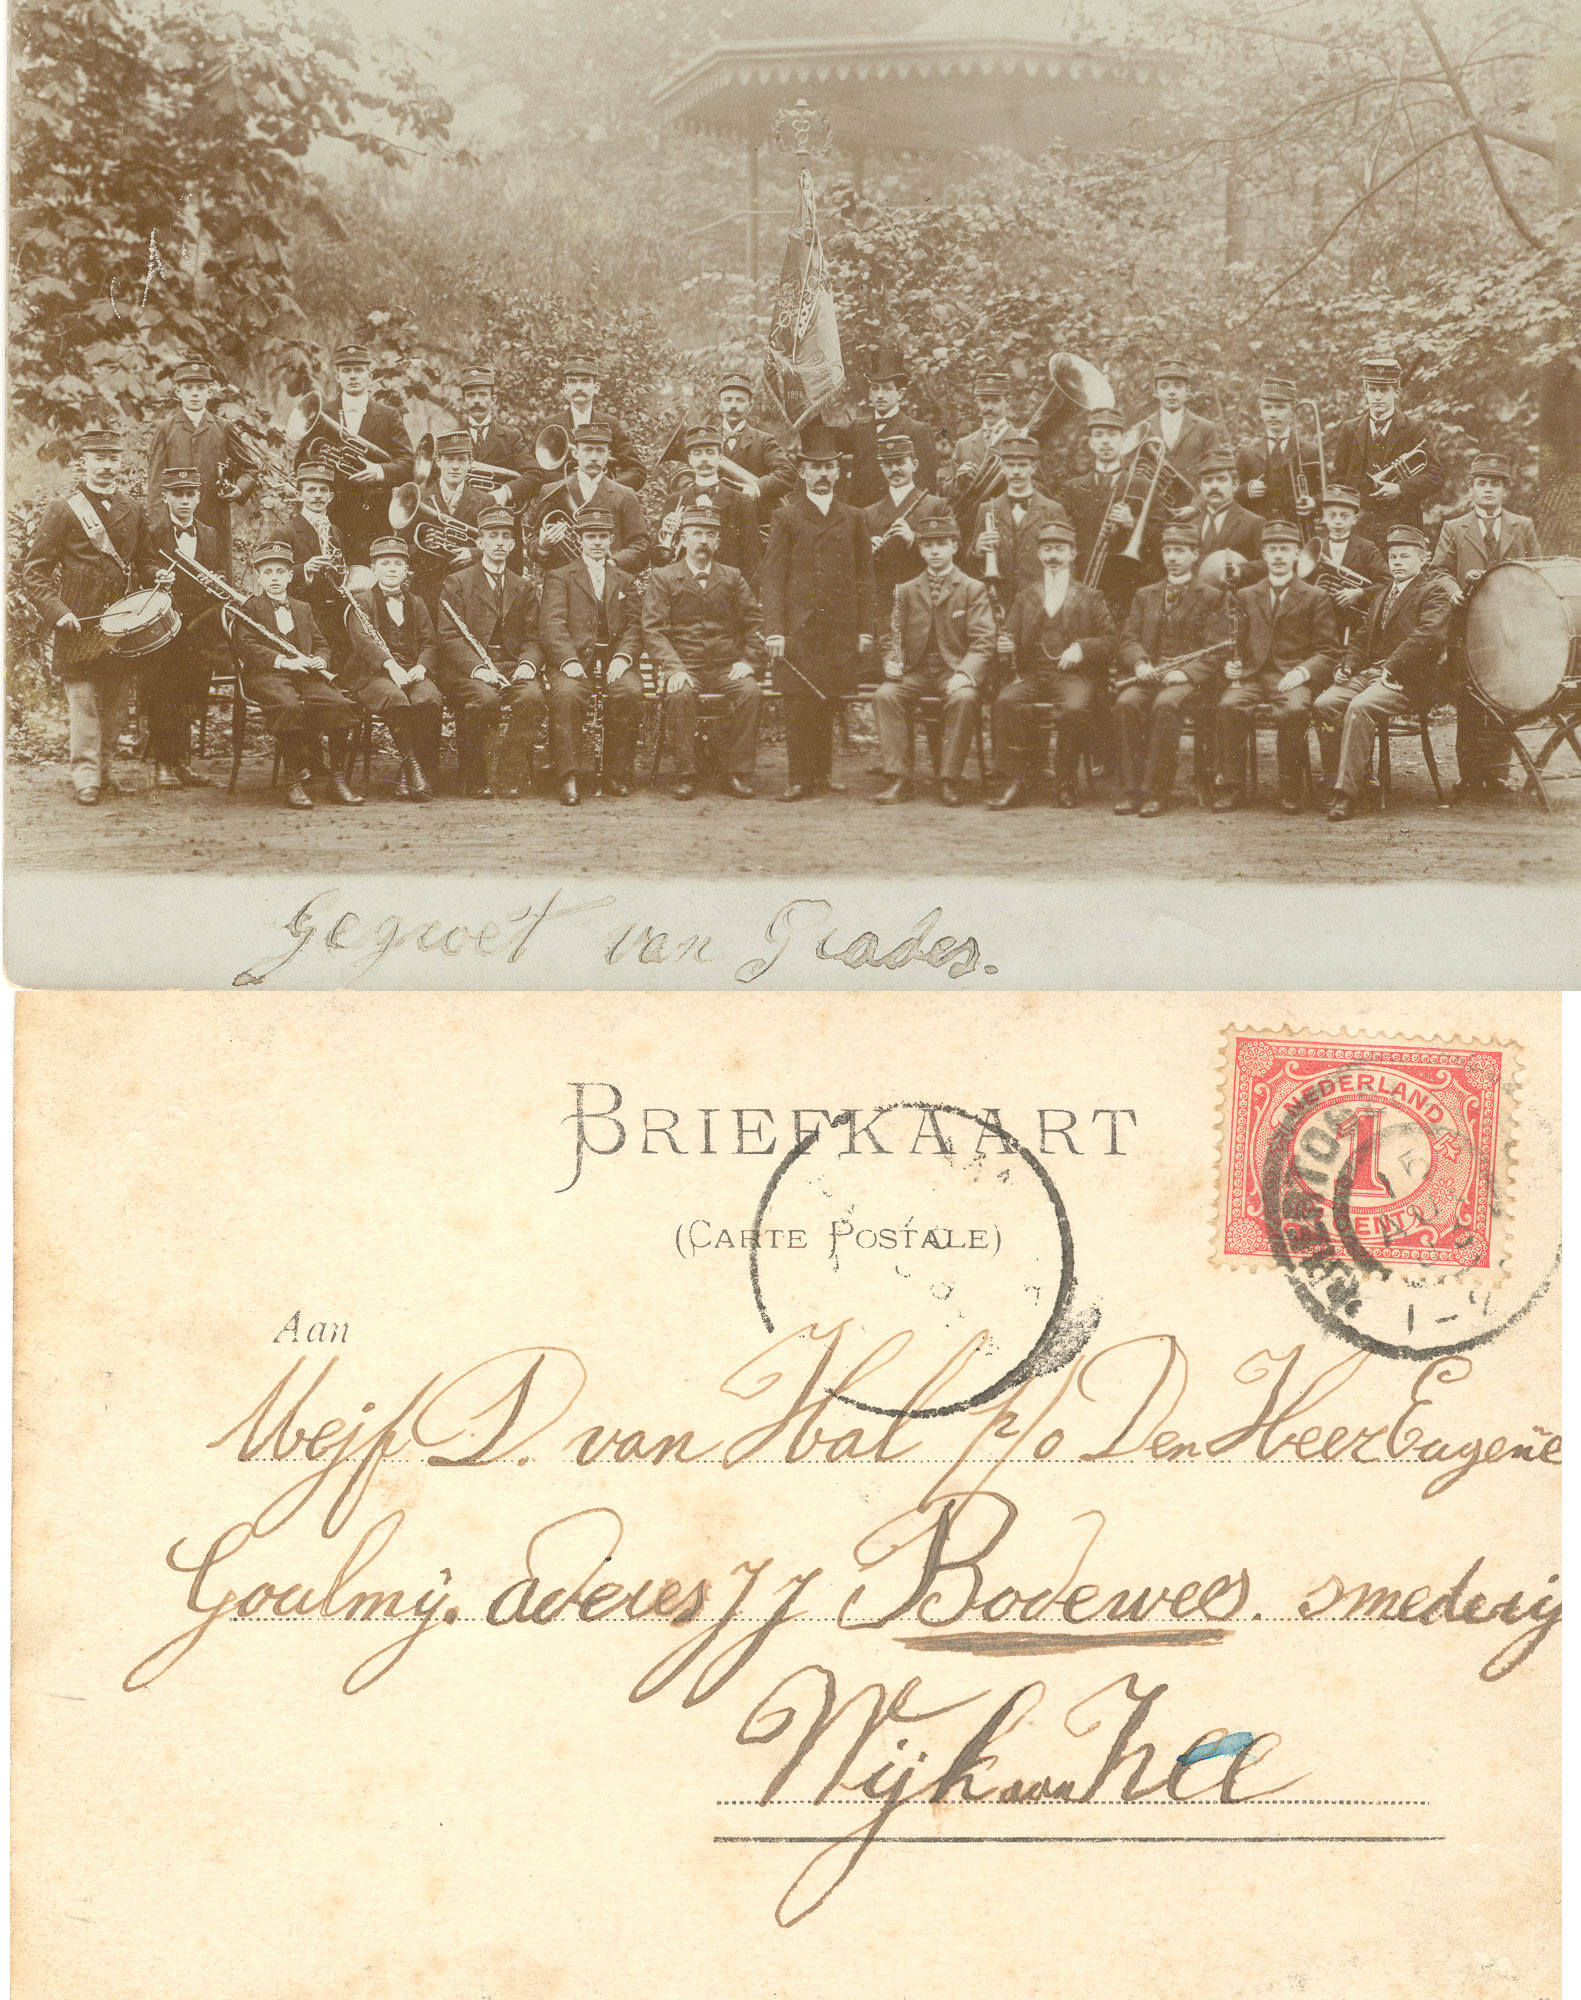 1894
Gegroet van Prades.
BRIEFKAART
(CARTE POSTALE)
NEDERLAND
1
CENT
Aan
Mejf D. van Hal p/o Den Heer Eugène
Goulmÿ. adres JJ Bodewes. smederij
Wijk aan Zee